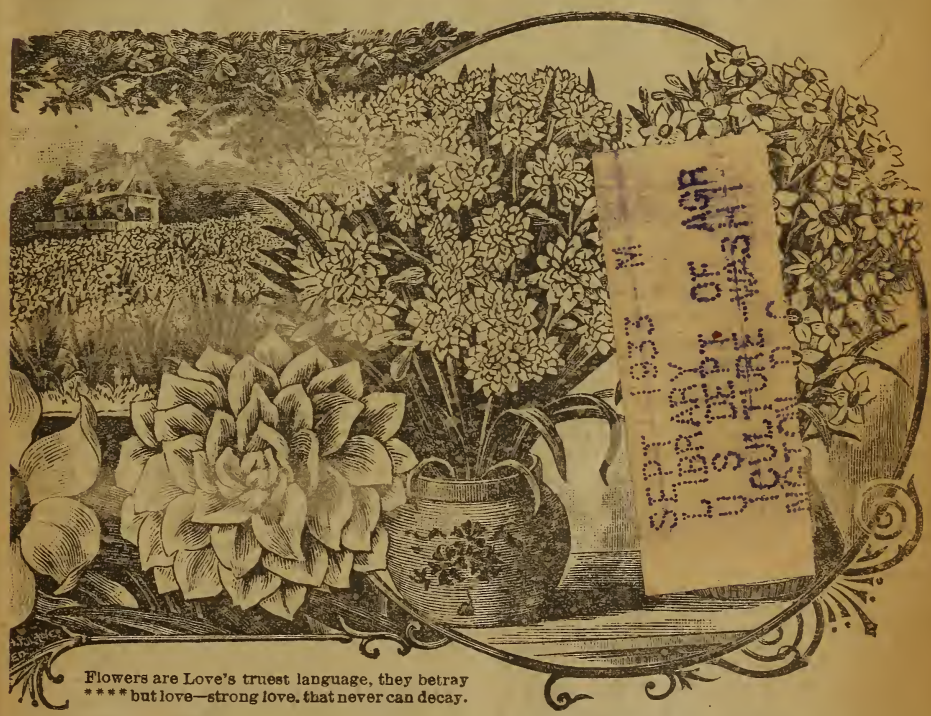 SEPT 1933 M
LIBRARY
U S DEPT OF AGR
ICULTURE WASHI
Flowers are Love's truest language, they betray
**** but love—strong love. that never can decay.